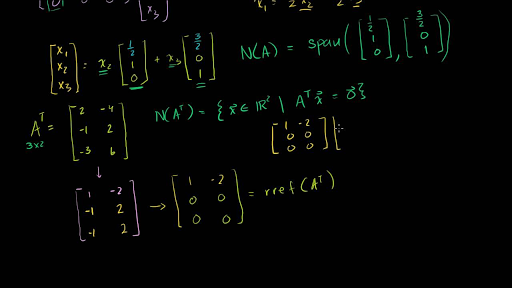 x₁ = 2 x₂
x₃
[x₁ x₂ x₃] = x₂ [1/2 1 0] + x₃ [3/2 0 1]
N(A) = span([1/2 1 0], [3/2 0 1])
Aᵀ = [2 -4; -1 2; -3 6]
3x2
N(Aᵀ) = {x⃗ ∈ ℝ² | Aᵀx⃗ = 0⃗}
[1 -2; 0 0; 0 0] [
↓
[1 -2; -1 2; -1 2] → [1 -2; 0 0; 0 0] = rref(Aᵀ)